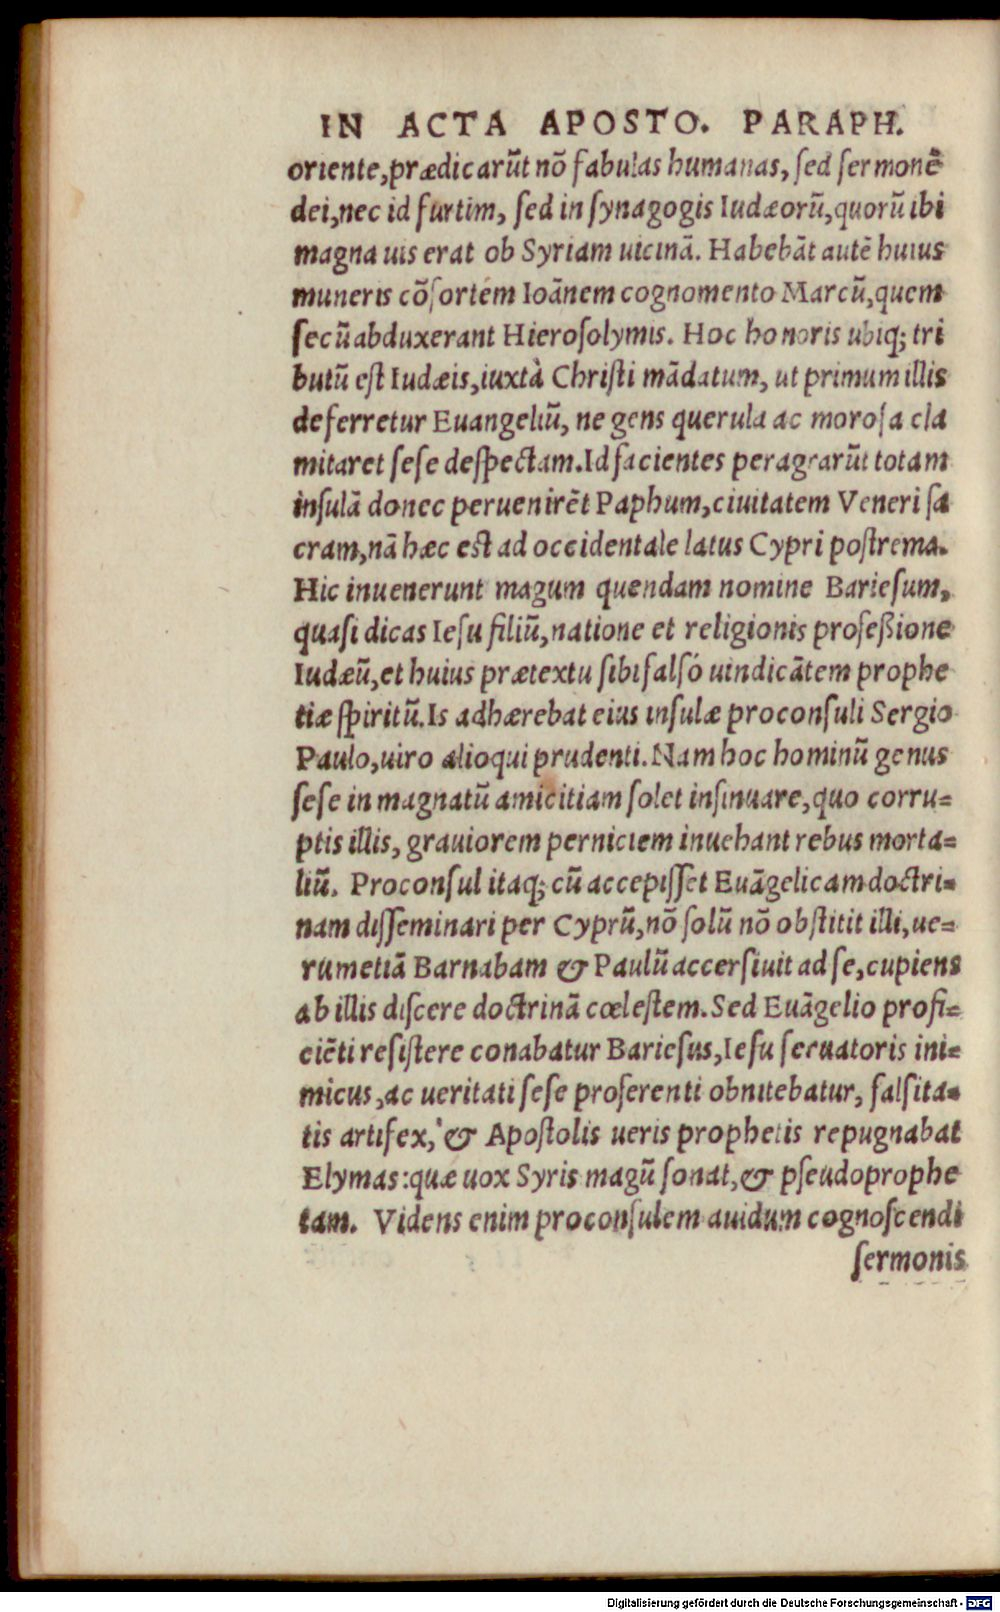 IN ACTA APOSTO. PARAPH.
oriente,prædicarūt nō fabulas humanas, sed sermonē
dei,nec id furtim, sed in synagogis Iudæorū,quorū ibi
magna uis erat ob Syriam uicinā. Habebāt autē huius
muneris cōsortem Ioānem cognomento Marcū,quem
secū abduxerant Hierosolymis. Hoc honoris ubiq; tri
butū est Iudæis,iuxtà Christi mādatum, ut primum illis
deferretur Euangeliū, ne gens querula ac morosa cla
mitaret sese despectam.Id facientes peragrarūt totam
insulā donec peruenirēt Paphum,ciuitatem Veneri sa
cram,nā hæc est ad occidentale latus Cypri postrema.
Hic inuenerunt magum quendam nomine Bariesum,
quasi dicas Iesu filiū,natione et religionis profeßione
Iudæū,et huius prætextu sibi falsó uindicātem prophe
tiæ spiritū.Is adhærebat eius insulæ proconsuli Sergio
Paulo,uiro alioqui prudenti.Nam hoc hominū genus
sese in magnatū amicitiam solet insinuare,quo corru=
ptis illis, grauiorem perniciem inuehant rebus morta=
liū. Proconsul itaq; cū accepisset Euāgelicam doctri=
nam disseminari per Cyprū,nō solū nō obstitit illi,ue=
rumetiā Barnabam & Paulū accersiuit ad se,cupiens
ab illis discere doctrinā cœlestem.Sed Euāgelio profi=
ciēti resistere conabatur Bariesus,Iesu seruatoris ini=
micus,ac ueritati sese proferenti obnitebatur, falsita=
tis artifex, & Apostolis ueris prophetis repugnabat
Elymas:quæ uox Syris magū sonat,& pseudoprophe
tam. Videns enim proconsulem auidum cognoscendi
sermonis
Digitalisierung gefördert durch die Deutsche Forschungsgemeinschaft - DFG